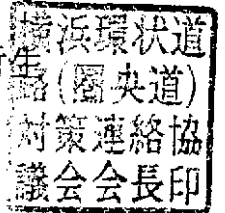 横浜環状道
路(圏央道)
対策連絡協
議会会長印